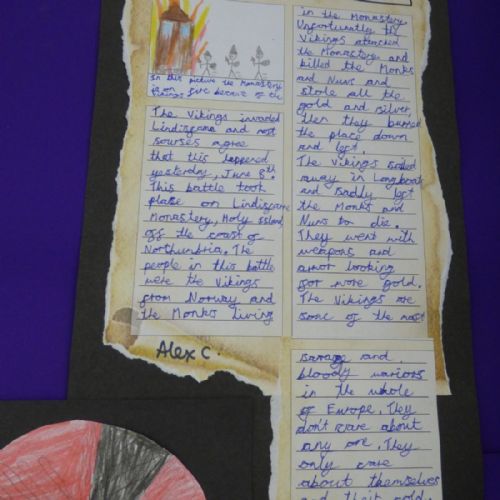 In this picture the monastery
is on fire because of the
Vikings
The Vikings invaded
Lindisgarne and most
sourses agree
that this happened
yesterday, June 8th.
This battle took
place on Lindisgarne
Monastery, Holy Island,
off the coast of
Northumbria. The
people in this battle
were the Vikings
from Norway and
the Monks living
in the monastery.
Unfortunatly the
Vikings attacked
the Monastery and
killed the Monks
and Nuns and
stole all the
gold and silver,
then they burned
the place down
and left.
The Vikings sailed
away in Longboats
and sadly left
the Monks and
Nuns to die.
They went with
weapons and
armor looking
for more gold.
The Vikings are
some of the most
savage and
bloody warriors
in the whole
of Europe. They
don't care about
any one. They
only care
about themselves
and their gold
Alex C.